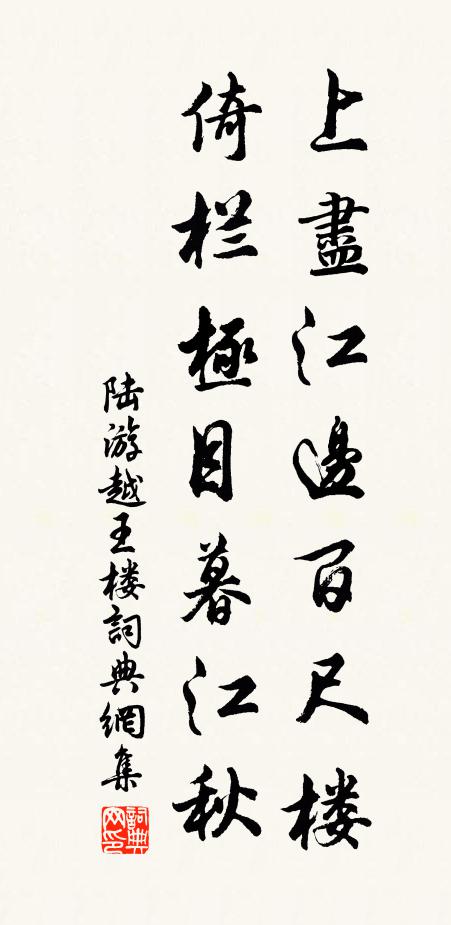 上盡江邊百尺楼
倚栏極目暮江秋
陆游越王楼詞典網集
詞典网印